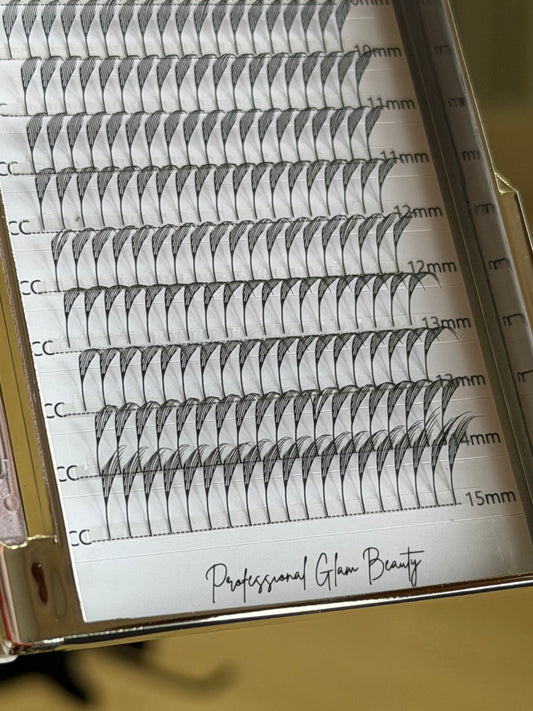 10mm
11mm
CC 11mm
CC 12mm
CC 12mm
CC 13mm
CC 13mm
CC 14mm
CC 15mm
Professional Glam Beauty